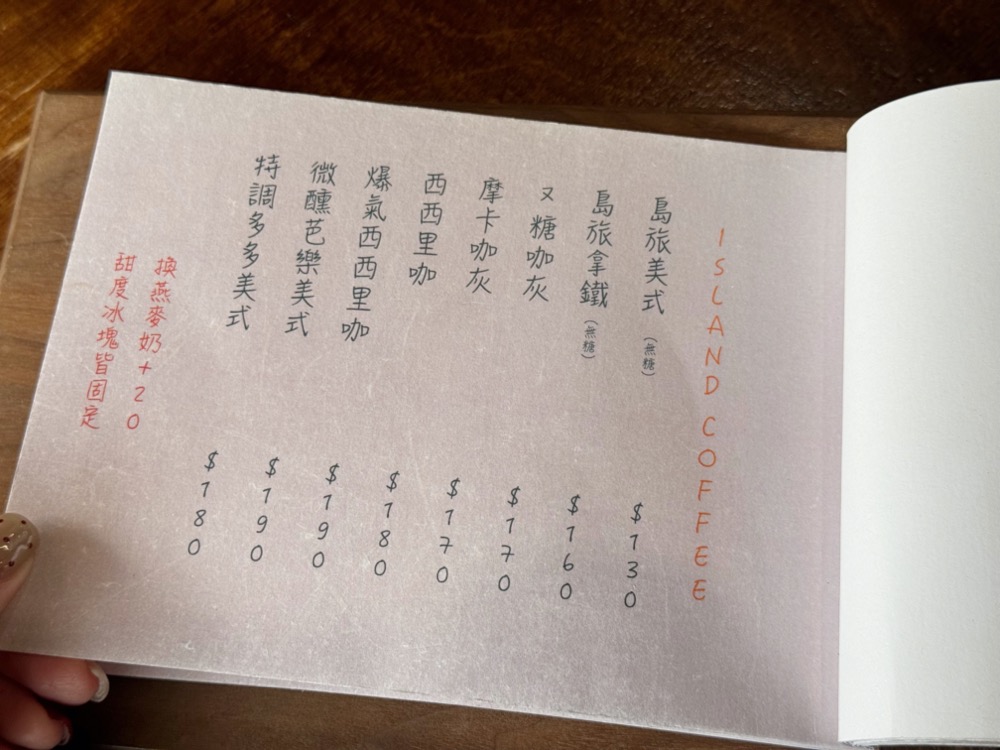 ISLAND COFFEE
島旅美式（無糖） $130
島旅拿鐵（無糖） $160
ㄡ糖咖灰 $170
摩卡咖灰 $170
西西里咖 $180
爆氣西西里咖 $190
微醺芭樂美式 $190
特調多多美式 $180
換燕麥奶+20
甜度冰塊皆固定